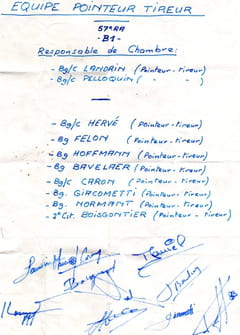 EQUIPE POINTEUR TIREUR
57e RA
- B1 -
Responsable de Chambre:
- Bg/c LANDRIN (Pointeur-tireur)
- Bg/c PELLOQUIN ( " - " )
- Bg/c HERVÉ (Pointeur-tireur)
- Bg FELON (Pointeur-tireur)
- Bg HOFFMANN (Pointeur-tireur)
- Bg BAVELAER (Pointeur-tireur)
- Bg/c CARON (Pointeur-tireur)
- Bg. GIACOMETTI (Pointeur-tireur)
- Bg. NORMANT (Pointeur-tireur)
- 2e Cit. BOISGONTIER (Pointeur-tireur)